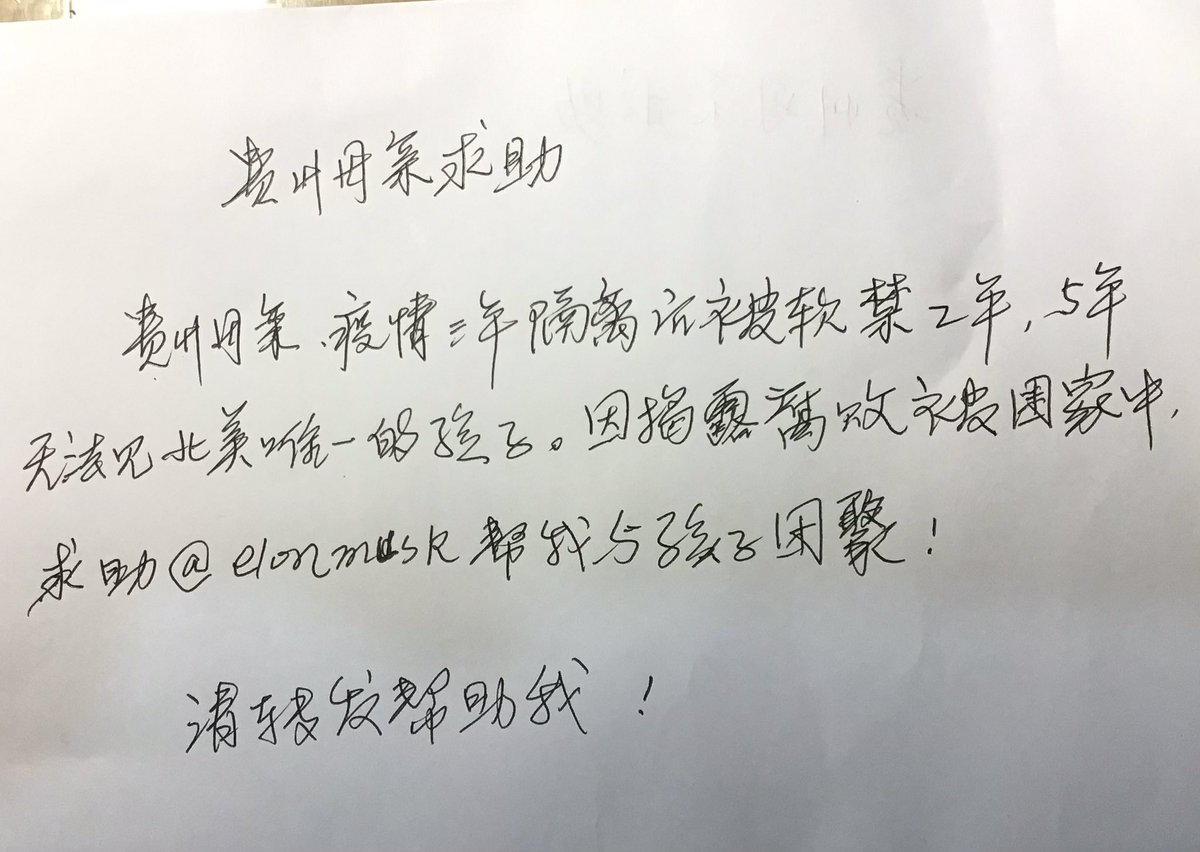 贵州母亲求助
贵州母亲、疫情三年隔离后被软禁2年,5年
无法见北美唯一的孩子。因揭露腐败被困家中,
求助@elonmusk帮我与孩子团聚!
请转发帮助我!